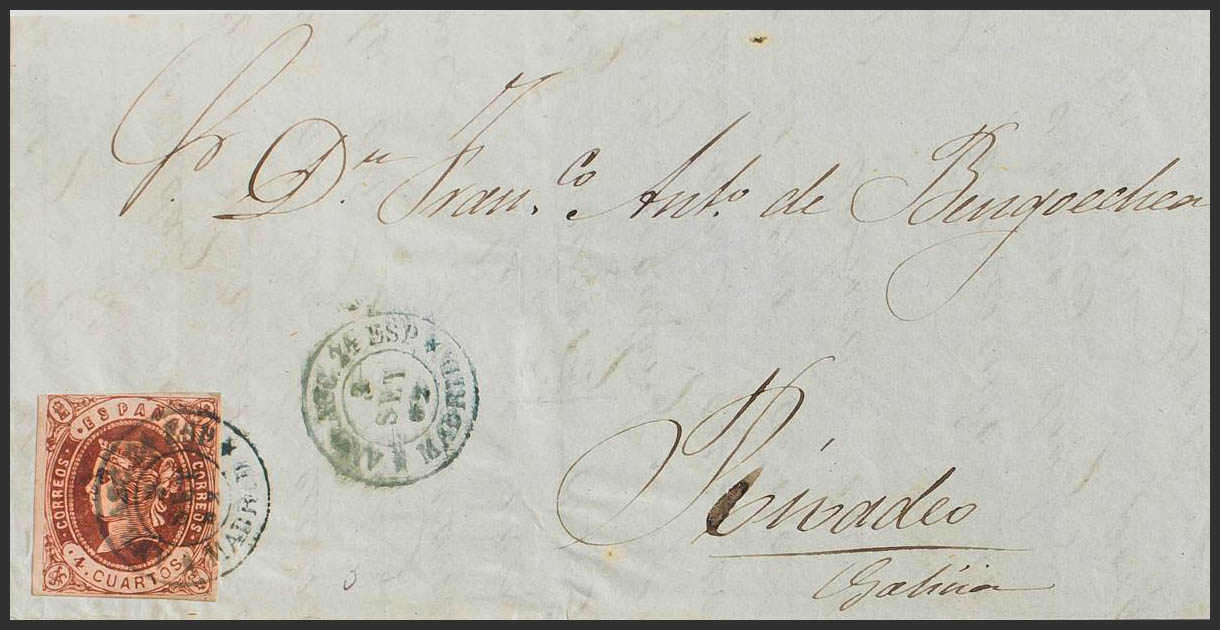 Sr. Dn. Franco. Anto. de Bengoechea
Rivadeo
Galicia
24 ESP. * MADRID
2
SET
62
ESPAÑA
CORREOS
CORREOS
4. CUARTOS
* MADRID